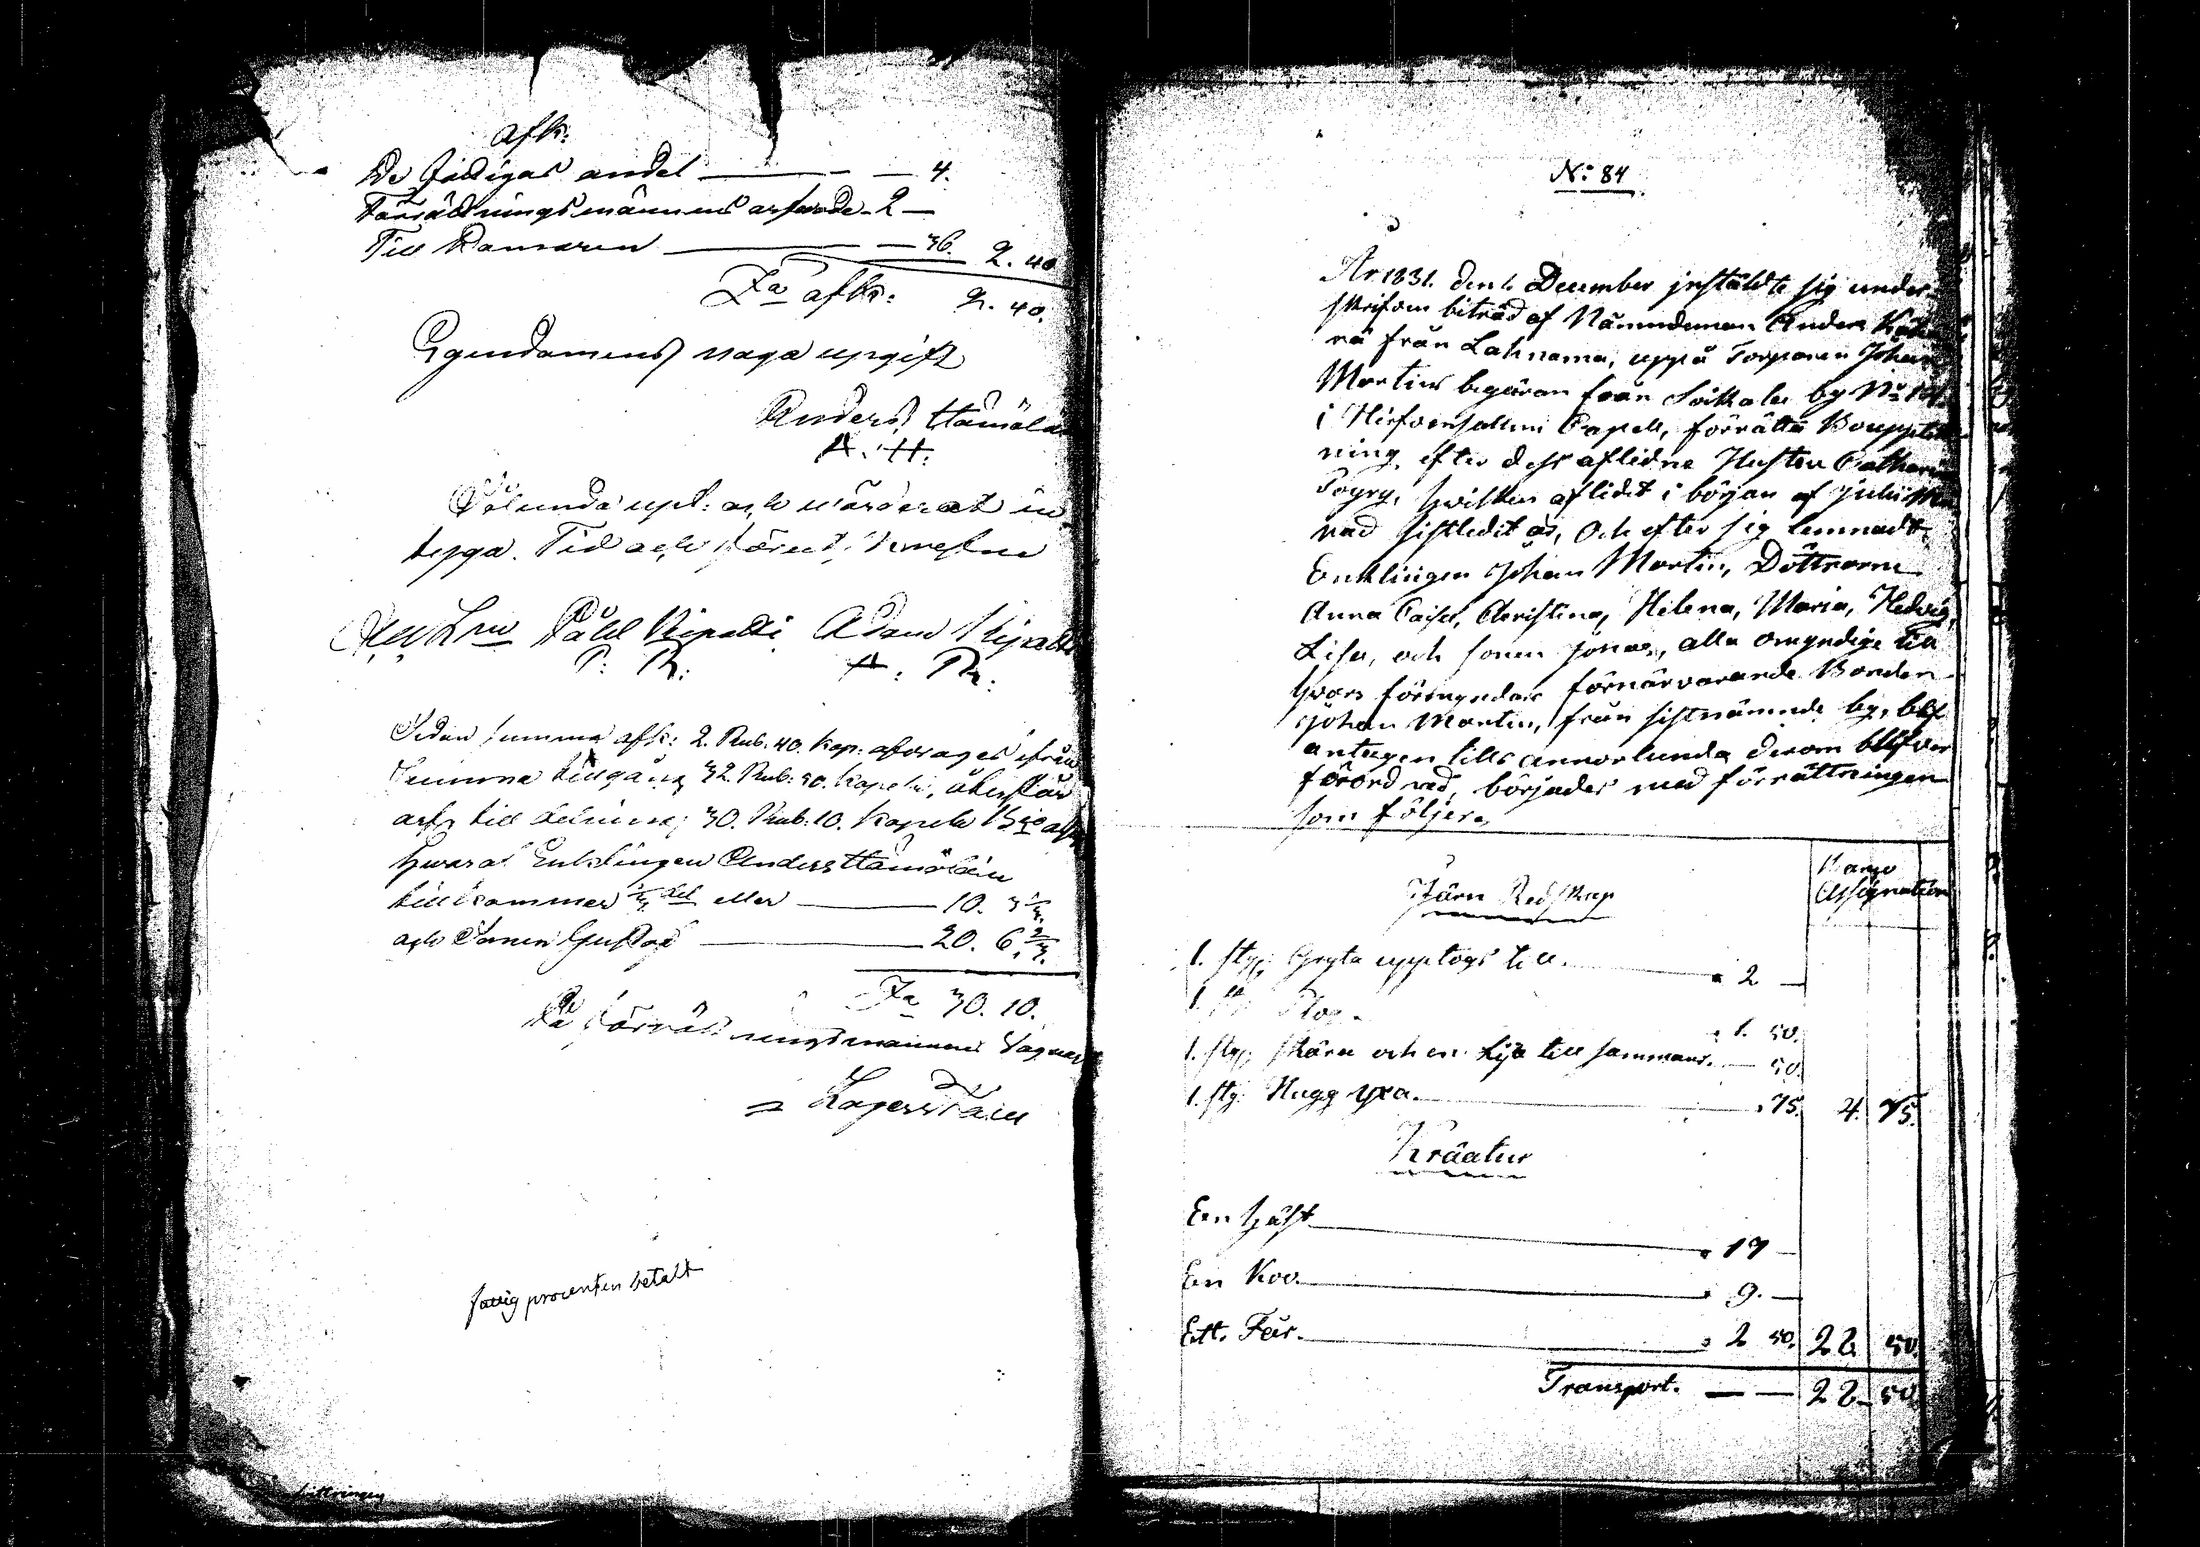 afk:
De fattigas andel — — 4.
Förrättningsmännens arfvode - 2 —
Till Kamaren — 36. 2. 40
Sa afk: 2. 40.
Egendomens noga upgift
Anders Hämälä
A. H.
Sålunda upt: och värderat in
tyga. Tid och förut,
Påhl Ripatti Adam Ripatti
P: R: A: R:
Sedan summa afk: 2. Rub. 40. Kop: afdrages ifrån
Summa tillgång 32. Rub: 50. Kopek, återstår
arf till delning 30. Rub: 10. Kopek
hwaraf Enklingen Anders Hämäläin
tillkommer 1/3 del eller — 10. 3 1/3.
och Sonen Gustaf — 20. 6. 2/3.
Sa 30. 10.
På förrättningsmannens vägnar
Lagerstam
fattig procenten betalt
No: 84
År 1831. den 1. December instäldte sig under-
skrifven biträd af Nämndeman Anders
nä från Lahnama, uppå Torparen Johan
Martins begäran från Soikala by No
i Hirfvensalmi Capell, förrätta Bouppteck
ning, efter dess aflidne Hustru Catharina
Pöyry, hvilken aflidit i början af Julii Må
nad sistledit år, Och efter sig lemnadt
Enklingen Johan Martin, Döttrarne
Anna Caisa, Christina, Helena, Maria, Hedvig,
Lisa, och sonen Jonas, alla omyndige till
hvars förmyndare förnärvarande Bonden
Johan Martin, från sistnämnde by, blef
antagen tills annorlunda derom blifver
förordnad, börjades med förrättningen
som följer,
Banco
Assignation
Järn Redskap
1. sty: Gryta upptogs till. — " 2 —
1. st: Plog. " 1. 50.
1. sty: skära och en lija till sammans. — 50.
1. sty: Hugg yxa. — " 75. 4. 75.
Kräatur
En häst — " 17 —
En Koo. — " 9. —
Ett. Får. — " 2 50. 28 50.
Transport. — — 28 50